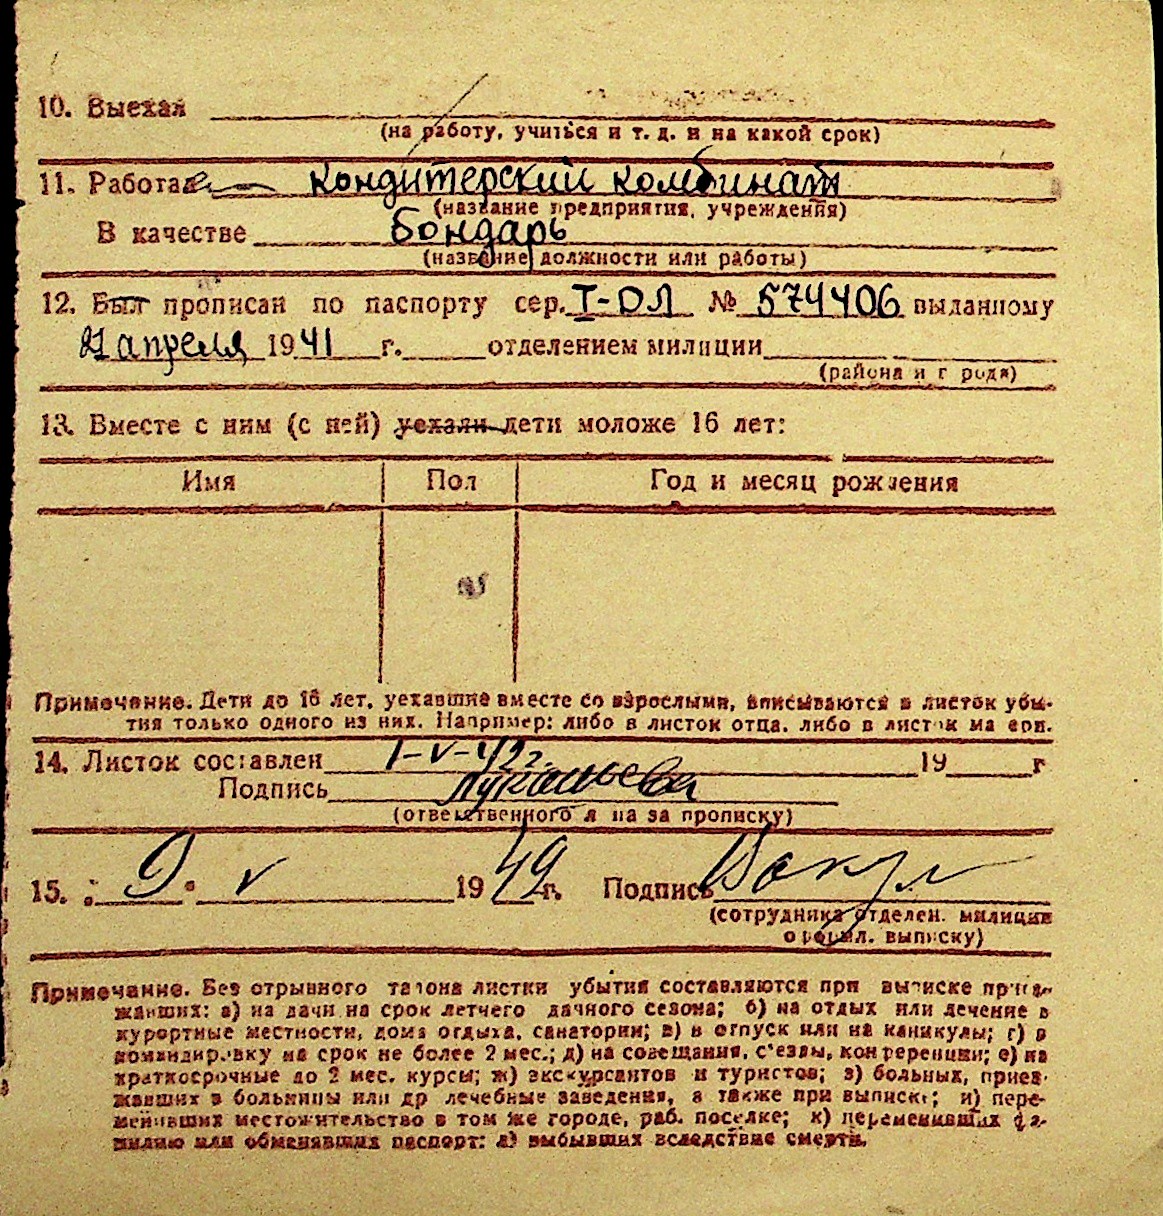 10. Выехал
(на работу, учиться и т. д. и на какой срок)
11. Работает Кондитерский комбинат
(название предприятия, учреждения)
В качестве Бондарь
(название должности или работы)
12. Был прописан по паспорту сер. I-ОЛ № 574406 выданному
21 апреля 1941 г. отделением милиции
(района и города)
13. Вместе с ним (с ней) уехали дети моложе 16 лет:
Имя Пол Год и месяц рождения
Примечание. Дети до 16 лет, уехавшие вместе со взрослыми, вписываются в листок убы-
тия только одного из них. Например: либо в листок отца, либо в листок матери.
14. Листок составлен 1-V-42г. 19 г
Подпись
(ответственного лица за прописку)
15. 9. V 1942 г. Подпись
(сотрудника отделен. милиции
оформл. выписку)
Примечание. Без отрывного талона листки убытия составляются при выписке приез-
жавших: а) на дачи на срок летнего дачного сезона; б) на отдых или лечение в
курортные местности, дома отдыха, санатории; в) в отпуск или на каникулы; г) в
командировку на срок не более 2 мес.; д) на совещания, с'езды, конференции; е) на
краткосрочные до 2 мес. курсы; ж) экскурсантов и туристов; з) больных, приез-
жавших в больницы или др лечебные заведения, а также при выписке; и) пере-
менивших местожительство в том же городе, раб. поселке; к) переменивших фа-
милию или обменявших паспорт: л) выбывших вследствие смерти.